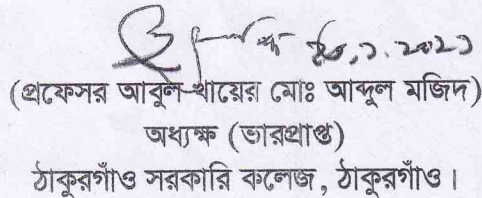 (প্রফেসর আবুল খায়ের মোঃ আব্দুল মজিদ)
অধ্যক্ষ (ভারপ্রাপ্ত)
ঠাকুরগাঁও সরকারি কলেজ, ঠাকুরগাঁও।